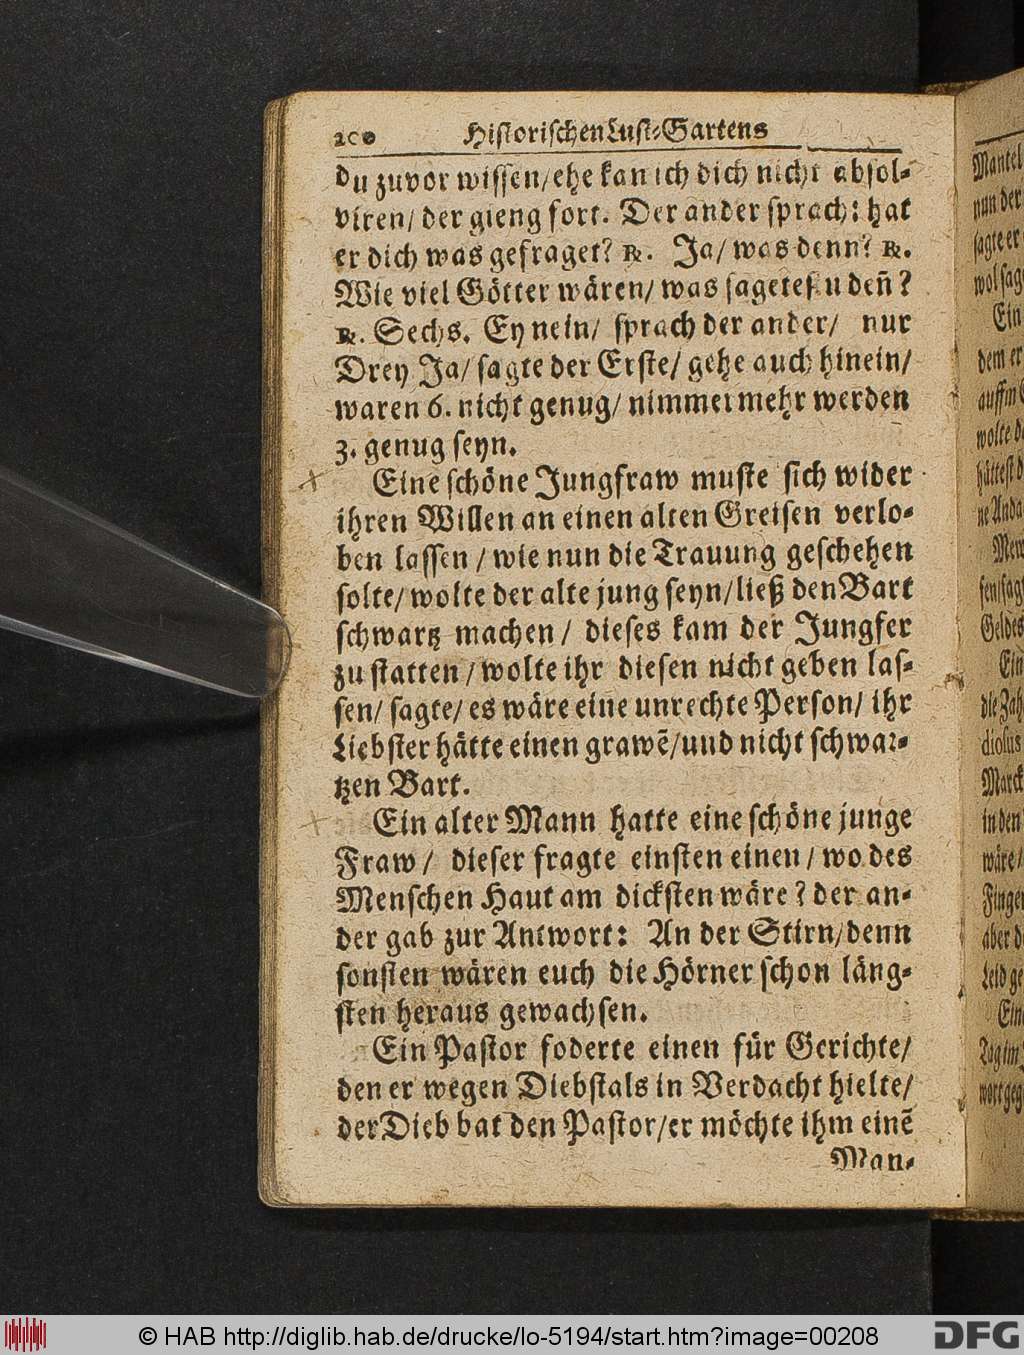 200 Historischen Lust-Gartens
du zuvor wissen/ ehe kan ich dich nicht absol-
viren/ der gieng fort. Der ander sprach: hat
er dich was gefraget? ℞. Ja/ was denn? ℞.
Wie viel Götter wären/ was sagetestu deñ?
℞. Sechs. Ey nein/ sprach der ander/ nur
Drey Ja/ sagte der Erste/ gehe auch hinein/
waren 6. nicht genug/ nimmermehr werden
3. genug seyn.
Eine schöne Jungfraw muste sich wider
ihren Willen an einen alten Greisen verlo-
ben lassen / wie nun die Trauung geschehen
solte/ wolte der alte jung seyn/ ließ den Bart
schwartz machen / dieses kam der Jungfer
zu statten / wolte ihr diesen nicht geben las-
sen/ sagte/ es wäre eine unrechte Person/ ihr
Liebster hätte einen grawẽ/ und nicht schwar-
tzen Bart.
Ein alter Mann hatte eine schöne junge
Fraw / dieser fragte einsten einen / wo des
Menschen Haut am dicksten wäre? der an-
der gab zur Antwort: An der Stirn/ denn
sonsten wären euch die Hörner schon läng-
sten heraus gewachsen.
Ein Pastor foderte einen für Gerichte/
den er wegen Diebstals in Verdacht hielte/
der Dieb bat den Pastor/ er möchte ihm einẽ
Man-
Mantel
nun der
sagte er
wol sag
Ein
dem er
auffm
wolte
hättest
ne Anda
sen/ sag
Geldes
Ein
die Zah
diosus
Marck
in den
wäre/
Finger
aber
Leid ge
Ein
Tag im
wort geg
© HAB http://diglib.hab.de/drucke/lo-5194/start.htm?image=00208
DFG